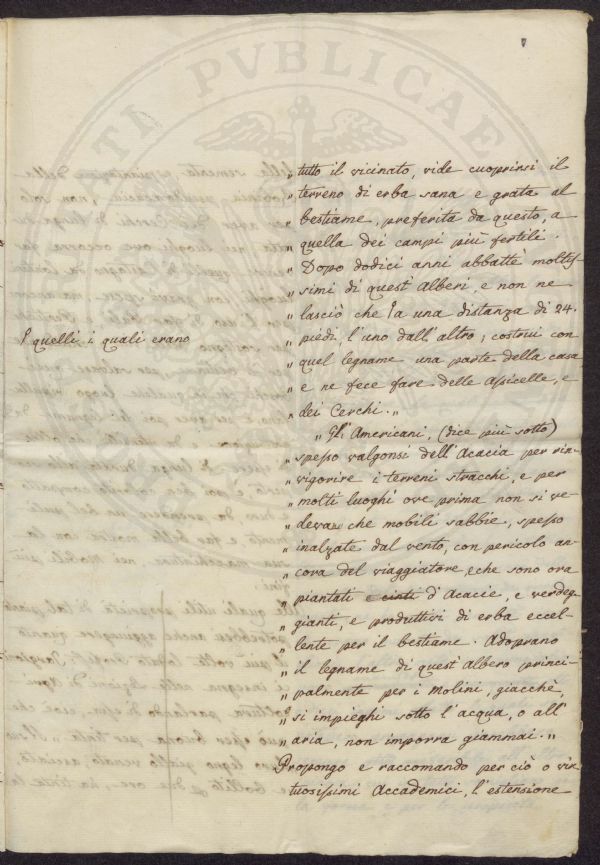 „ tutto il vicinato, vide cuoprirsi il
„ terreno di erba sana e grata al
„ bestiame, preferita da questo, a
„ quella dei campi più fertili.
„ Dopo dodici anni abbattè moltis
„ simi di quest'Alberi, e non ne
„ lasciò che Γ a una distanza di 24.
Γ quelli i quali erano
„ piedi, l'uno dall'altro; costruì con
„ quel legname una parte della casa
„ e ne fece fare delle Assicelle, e
„ dei Cerchi.„
„ Gl'Americani, (dice più sotto)
„ spesso valgonsi dell'Acacia per rin
„ vigorire i terreni stracchi, e per
„ molti luoghi ove prima non si ve
„ deva che mobili sabbie, spesso
„ inalzate dal vento, con pericolo an
„ cora del viaggiatore, che sono ora
„ piantati e cinti d'Acacie, e verdeg
„ gianti, e produttivi di erba eccel
„ lente per il bestiame. Adoprano
„ il legname di quest'Albero princi
„ palmente per i Molini, giacchè,
„ si impieghi sotto l'acqua, o all'
„ aria, non imporra giammai.„
Propongo e raccomando per ciò o vir
tuosissimi Accademici, l'estensione
PVBLICAE